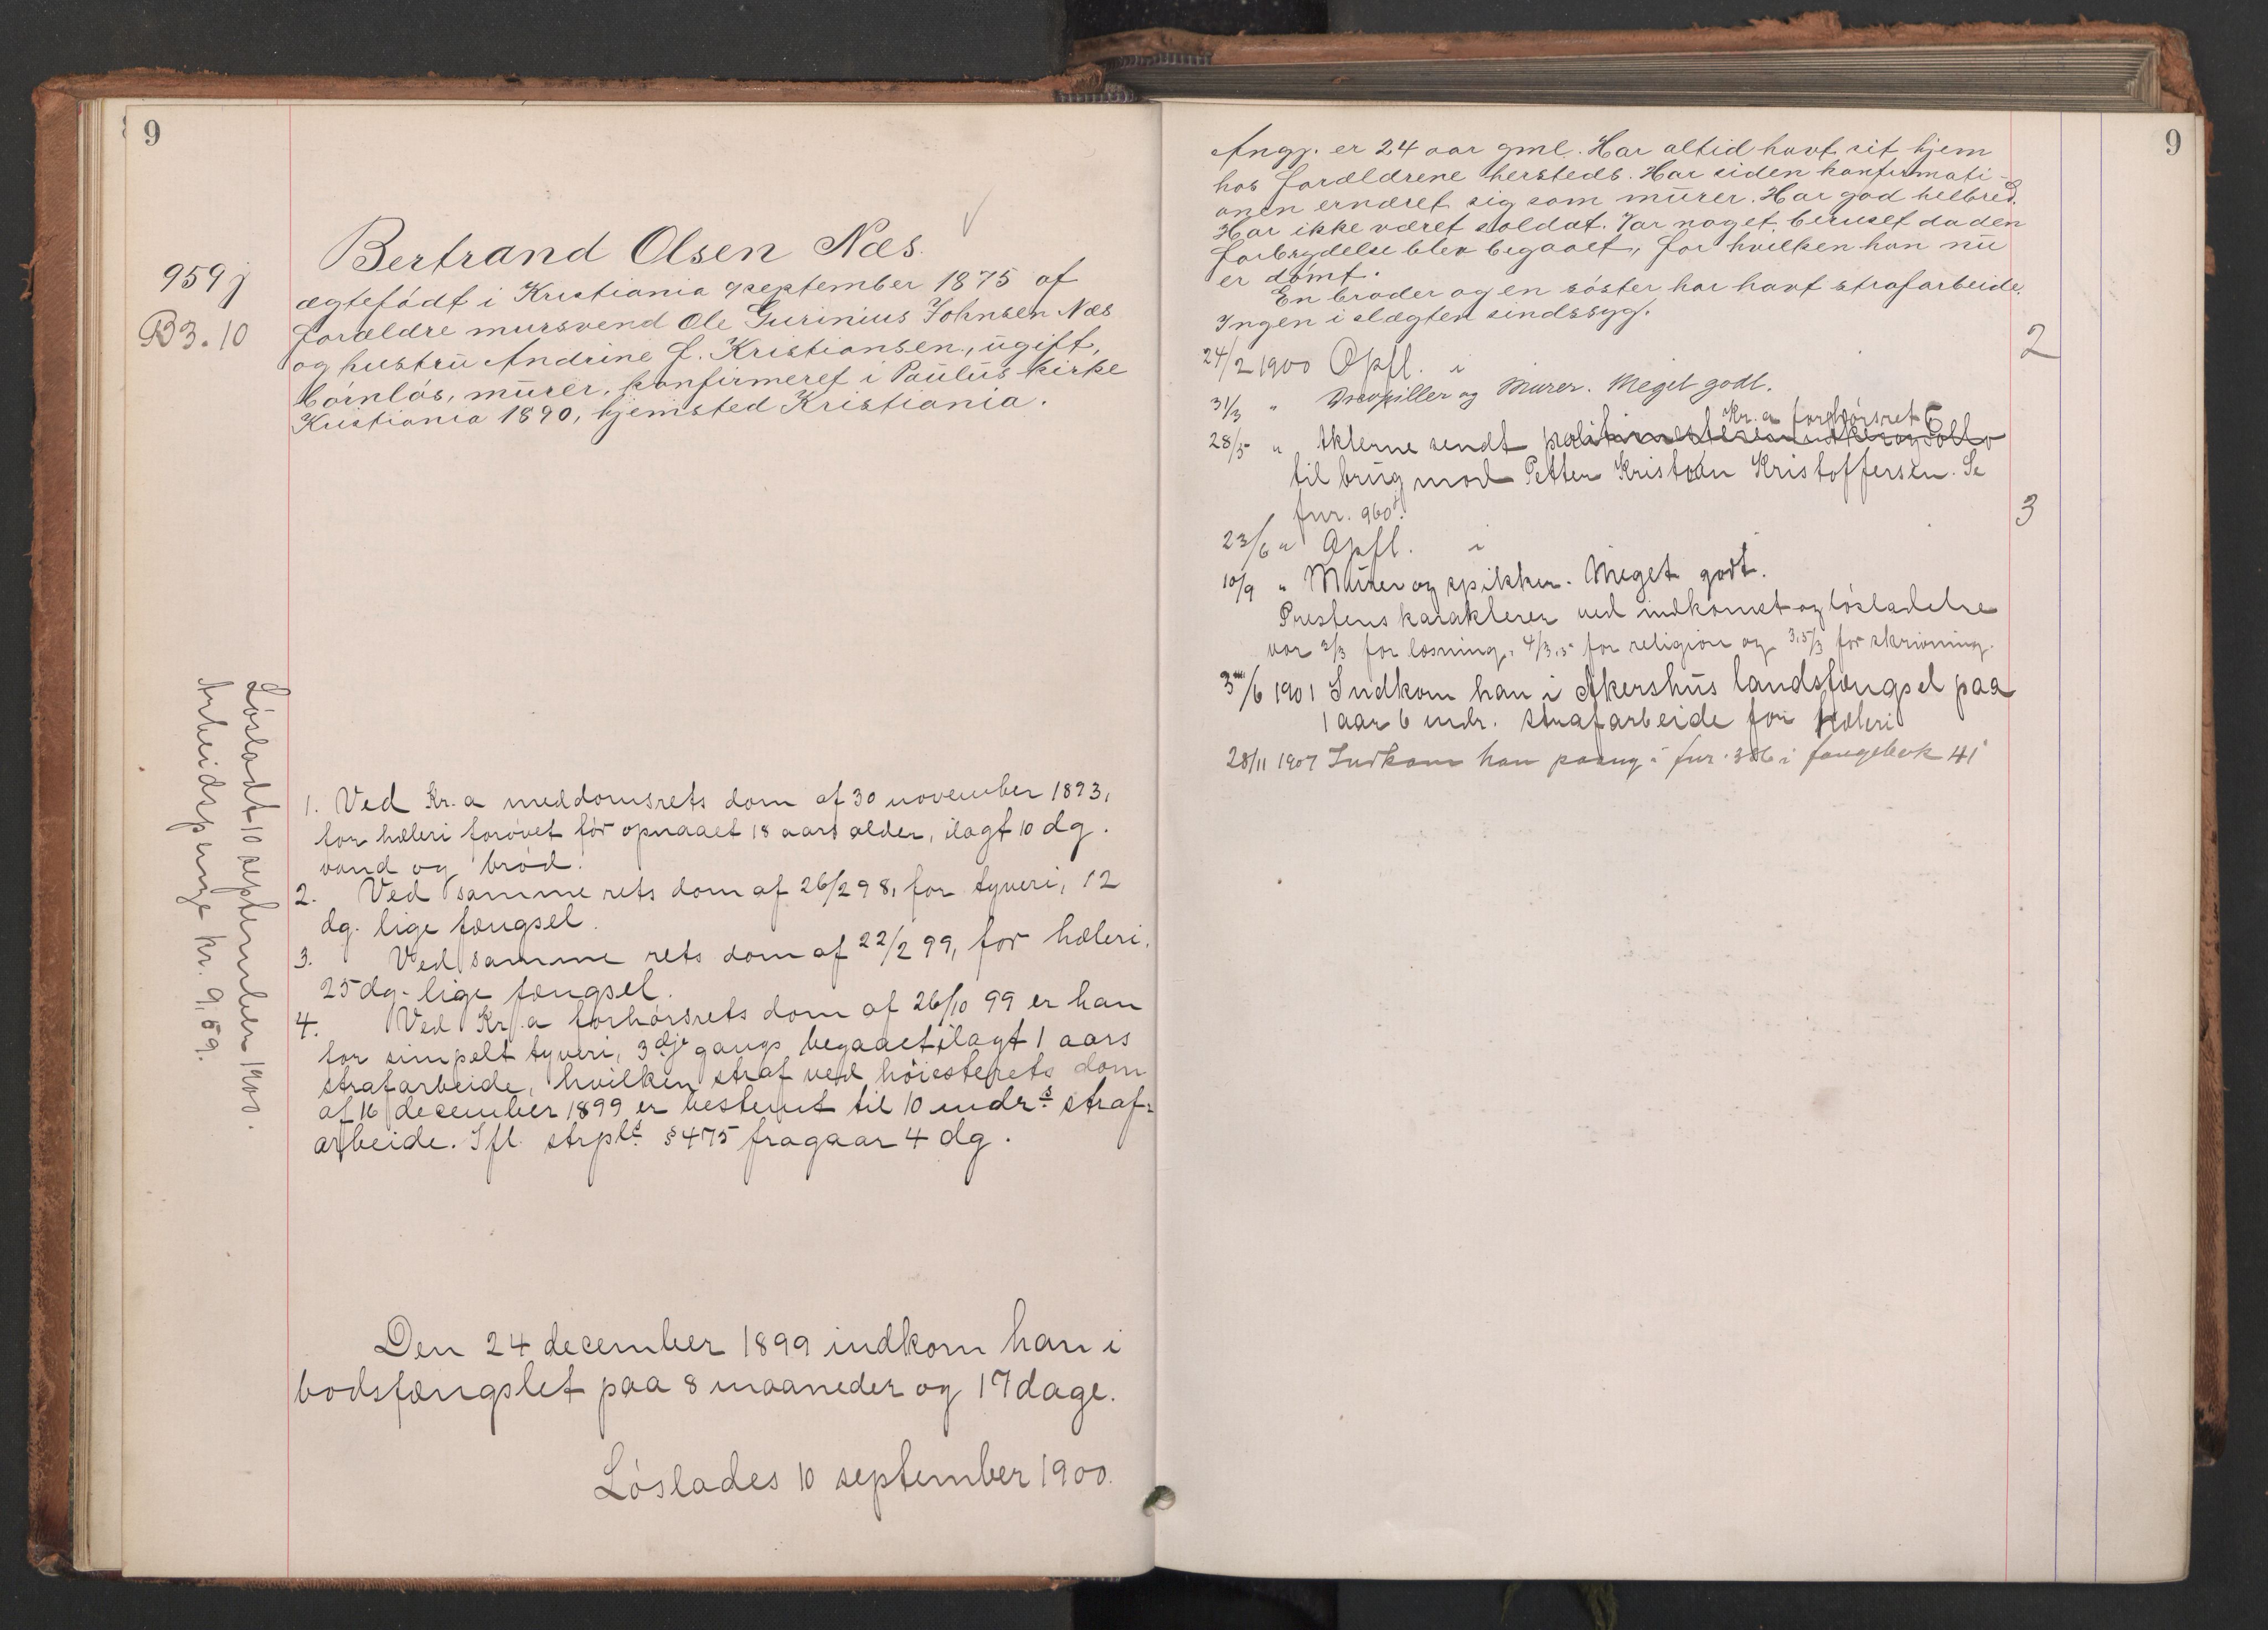 9
959j
B3.10
Bertrand Olsen Næs.
ægtefødt i Kristiania 9 september 1875 af
forældre mursvend Ole Gurinius Johnsen Næs
og hustru Andrine f. Kristiansen, ugift,
børnløs, murer, konfirmeret i Paulus kirke
Kristiania 1890, hjemsted Kristiania.
1. Ved Kr.a meddomsrets dom af 30 november 1893,
for hæleri forøvet før opnaaet 18 aars alder, ilagt 10 dg.
vand og brød.
2. Ved samme rets dom af 26/2 98, for tyveri, 12
dg. lige fængsel.
3. Ved samme rets dom af 22/2 99, for hæleri,
25 dg. lige fængsel.
4. Ved Kr.a forhørsrets dom af 26/10 99 er han
for simpelt tyveri, 3dje gangs begaaet ilagt 1 aars
strafarbeide, hvilken straf ved høiesterets dom
af 16 december 1899 er bestemt til 10 mdrs straf-
arbeide. Ifl. strpl. § 475 fragaar 4 dg.
Den 24 december 1899 indkom han i
bodsfængslet paa 8 maaneder og 17 dage.
Løslades 10 september 1900.
Løsladt 10 september 1900.
Arbeidspenge kr. 9,59.
9
Angj. er 24 aar gml. Har altid havt sit hjem
hos forældrene hersteds. Har siden konfirmati-
onen ernæret sig som murer. Har god helbred.
Har ikke været soldat. Var noget beruset da den
forbrydelse blev begaaet, for hvilken han nu
er dømt.
En broder og en søster har havt strafarbeide.
Ingen i slægten sindssyg.
24/2 1900 Opfl. i 2
31/3 " og Murer. Meget godt.
Kr.a forhørsret
28/5 " Akterne sendt
til brug mod Petter Kristian Kristoffersen. Se
fnr. 960j.
23/6 " Opfl. i 3
10/9 " Murer og spikker. Meget godt.
Prestens karakterer ved indkomst og løsladelse
var 3/3 for læsning, 4/3,5 for religion og 3,5/3 for skrivning.
3/6 1901 Indkom han i Akershus landsfængsel paa
1 aar 6 mdr. strafarbeide for hæleri
28/11 1907 Indkom han paany i fnr. 386 i fangebok 41